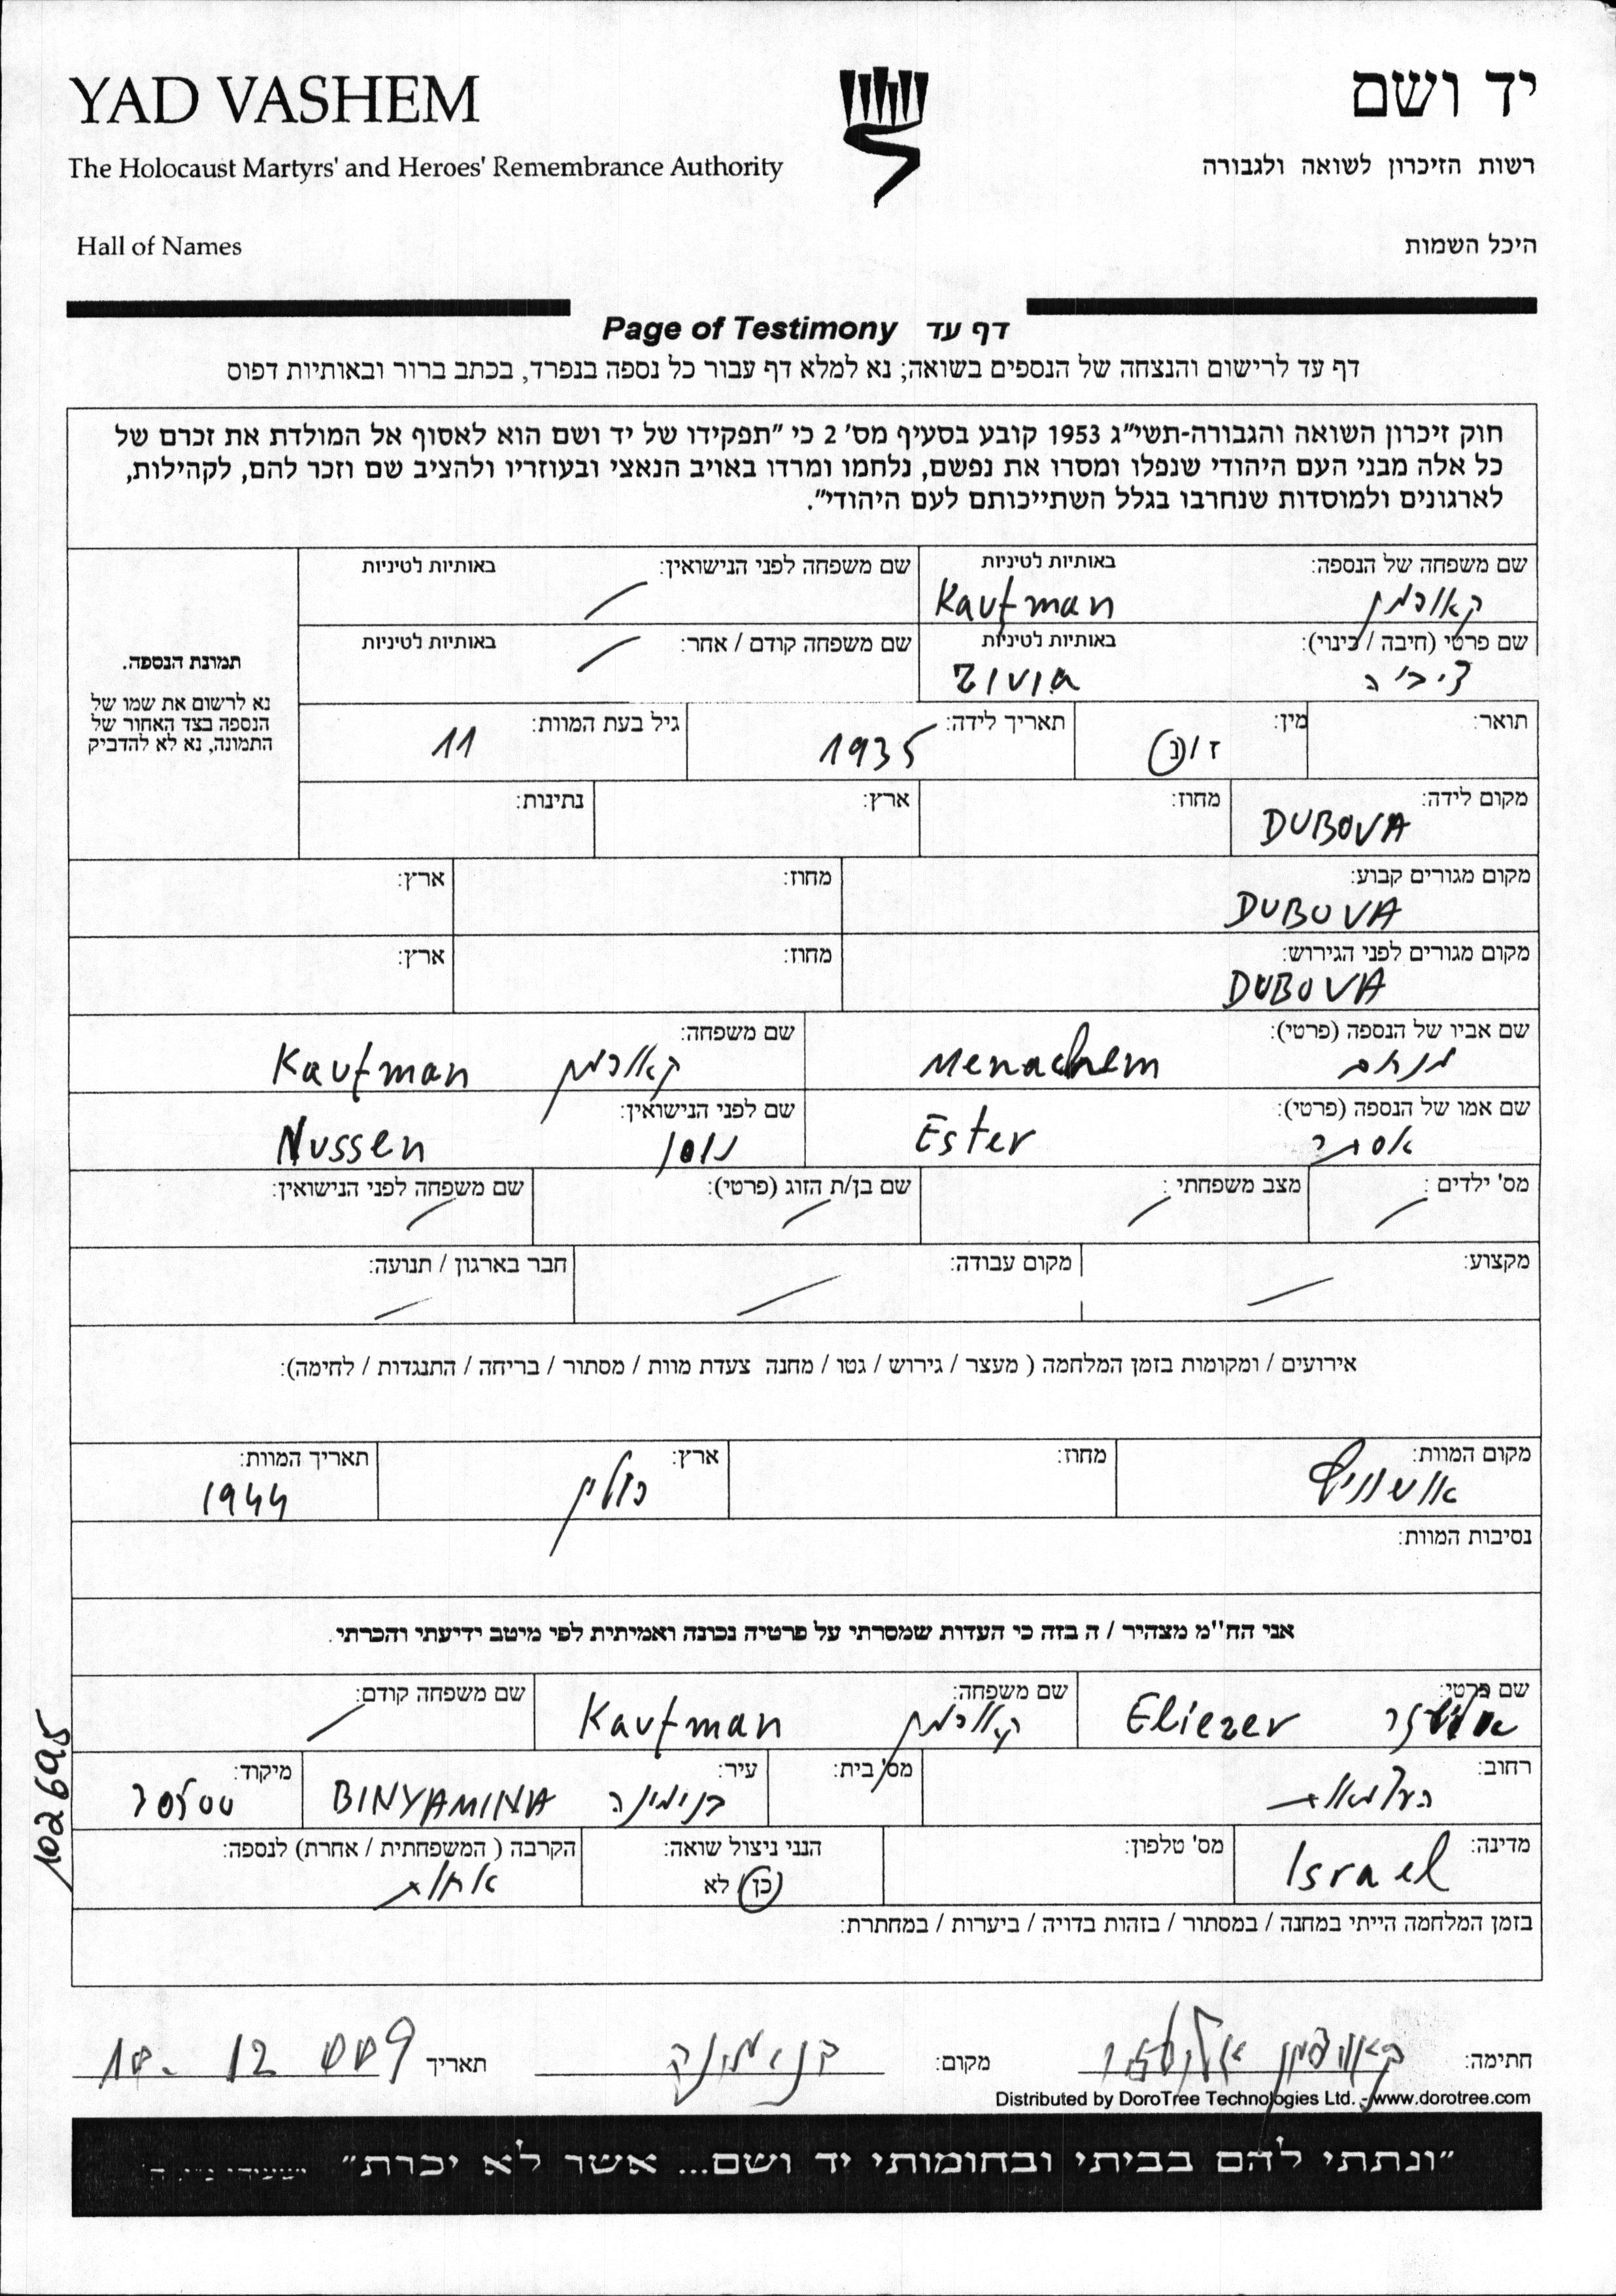 YAD VASHEM
יד ושם
The Holocaust Martyrs' and Heroes' Remembrance Authority
רשות הזיכרון לשואה ולגבורה
Hall of Names
היכל השמות
Page of Testimony דף עד
דף עד לרישום והנצחה של הנספים בשואה; נא למלא דף עבור כל נספה בנפרד, בכתב ברור ובאותיות דפוס
חוק זיכרון השואה והגבורה-תשי״ג 1953 קובע בסעיף מס' 2 כי ״תפקידו של יד ושם הוא לאסוף אל המולדת את זכרם של
כל אלה מבני העם היהודי שנפלו ומסרו את נפשם, נלחמו ומרדו באויב הנאצי ובעוזריו ולהציב שם וזכר להם, לקהילות,
לארגונים ולמוסדות שנחרבו בגלל השתייכותם לעם היהודי״.
שם משפחה של הנספה: באותיות לטיניות שם משפחה לפני הנישואין: באותיות לטיניות
קאופמן Kaufman
שם פרטי (חיבה / כינוי): באותיות לטיניות שם משפחה קודם / אחר: באותיות לטיניות
ציביה ZIVIA
תמונת הנספה.
נא לרשום את שמו של
הנספה בצד האחור של
התמונה, נא לא להדביק
תואר: מין: תאריך לידה: גיל בעת המוות:
ז / נ 1935 11
מקום לידה: מחוז: ארץ: נתינות:
DUBOVA
מקום מגורים קבוע: מחוז: ארץ:
DUBOVA
מקום מגורים לפני הגירוש: מחוז: ארץ:
DUBOVA
שם אביו של הנספה (פרטי): שם משפחה:
מנחם Menachem קאופמן Kaufman
שם אמו של הנספה (פרטי): שם לפני הנישואין:
אסתר Ester נוסן Nussen
מס' ילדים : מצב משפחתי : שם בן/ת הזוג (פרטי): שם משפחה לפני הנישואין:
מקצוע: מקום עבודה: חבר בארגון / תנועה:
אירועים / ומקומות בזמן המלחמה ( מעצר / גירוש / גטו / מחנה צעדת מוות / מסתור / בריחה / התנגדות / לחימה):
מקום המוות: מחוז: ארץ: תאריך המוות:
אושוויץ פולין 1944
נסיבות המוות:
אני הח"מ מצהיר / ה בזה כי העדות שמסרתי על פרטיה נכונה ואמיתית לפי מיטב ידיעתי והכרתי.
שם פרטי: שם משפחה: שם משפחה קודם:
אליעזר Eliezer קאופמן Kaufman
רחוב: מס' בית: עיר: מיקוד:
העצמאות בנימינה BINYAMINA 30500
מדינה: מס' טלפון: הנני ניצול שואה: הקרבה ( המשפחתית / אחרת) לנספה:
Israel כן / לא אחות
בזמן המלחמה הייתי במחנה / במסתור / בזהות בדויה / ביערות / במחתרת:
102695
חתימה: קאופמן אליעזר מקום: בנימינה תאריך 10. 12 009
Distributed by DoroTree Technologies Ltd. - www.dorotree.com
״ונתתי להם בביתי ובחומותי יד ושם... אשר לא יכרת״ ישעיהו נ״ו, ה'